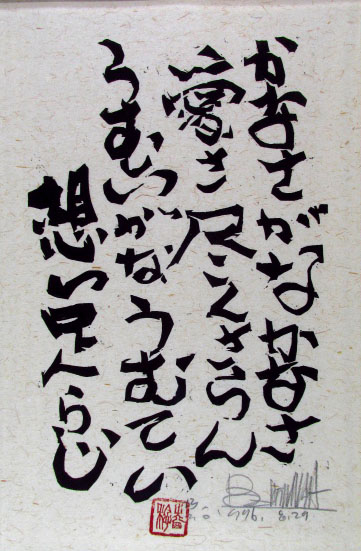 かなさがなかなさ
愛さ尽くさらん
うむいがなうむてい
想い
1996. 8.29